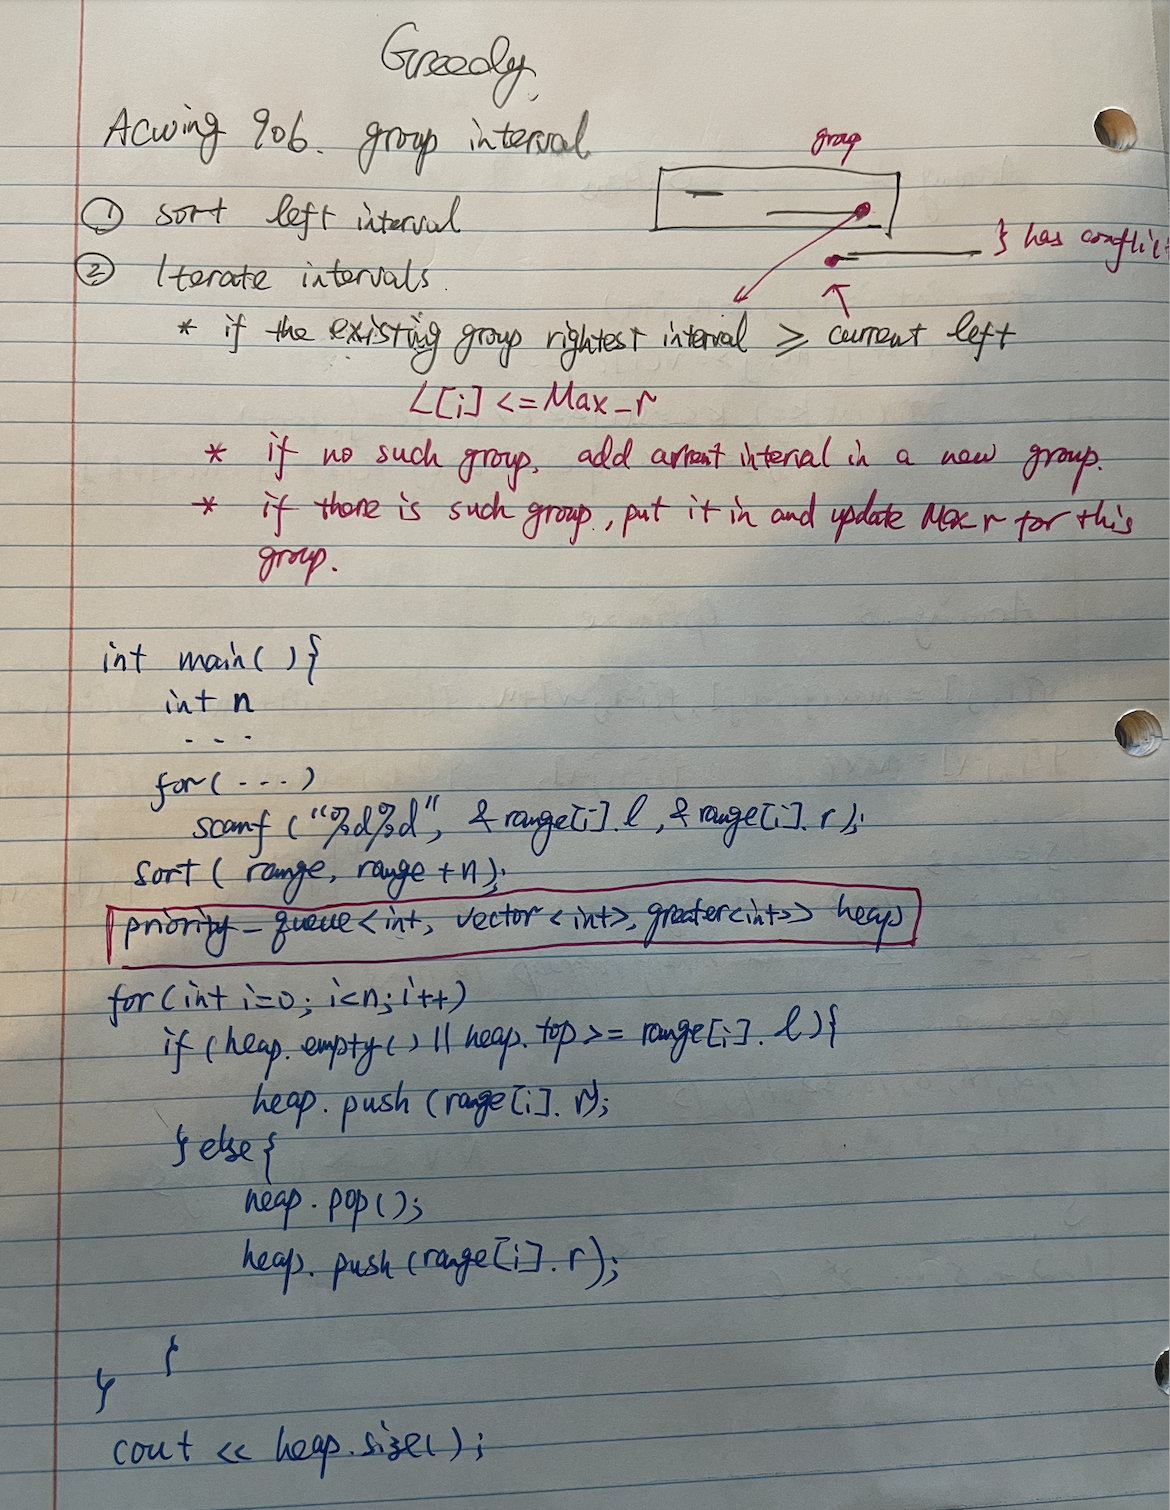 Greedy
Acwing 906. group interval
group
① sort left interval
} has conflict
② Iterate intervals.
* if the existing group rightest interval ≥ current left
L[i] <= Max_r
* if no such group, add current interval in a new group.
* if there is such group, put it in and update Max r for this
group.
int main( ){
int n
- - -
for( - - - )
scanf ("%d%d", & range[i].l, & range[i].r);
sort( range, range +n);
priority_queue<int, vector<int>, greater<int>> heap
for(int i=0; i<n; i++)
if (heap.empty() || heap.top >= range[i].l){
heap.push (range[i].r);
} else {
heap.pop();
heap.push (range[i].r);
}
}
cout << heap.size();